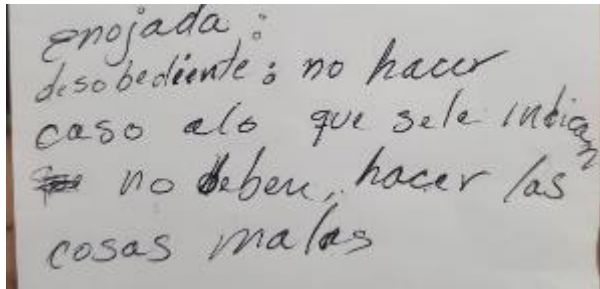 enojada :
desobediente : no hacer
caso alo que sele indican
no deben, hacer las
cosas malas